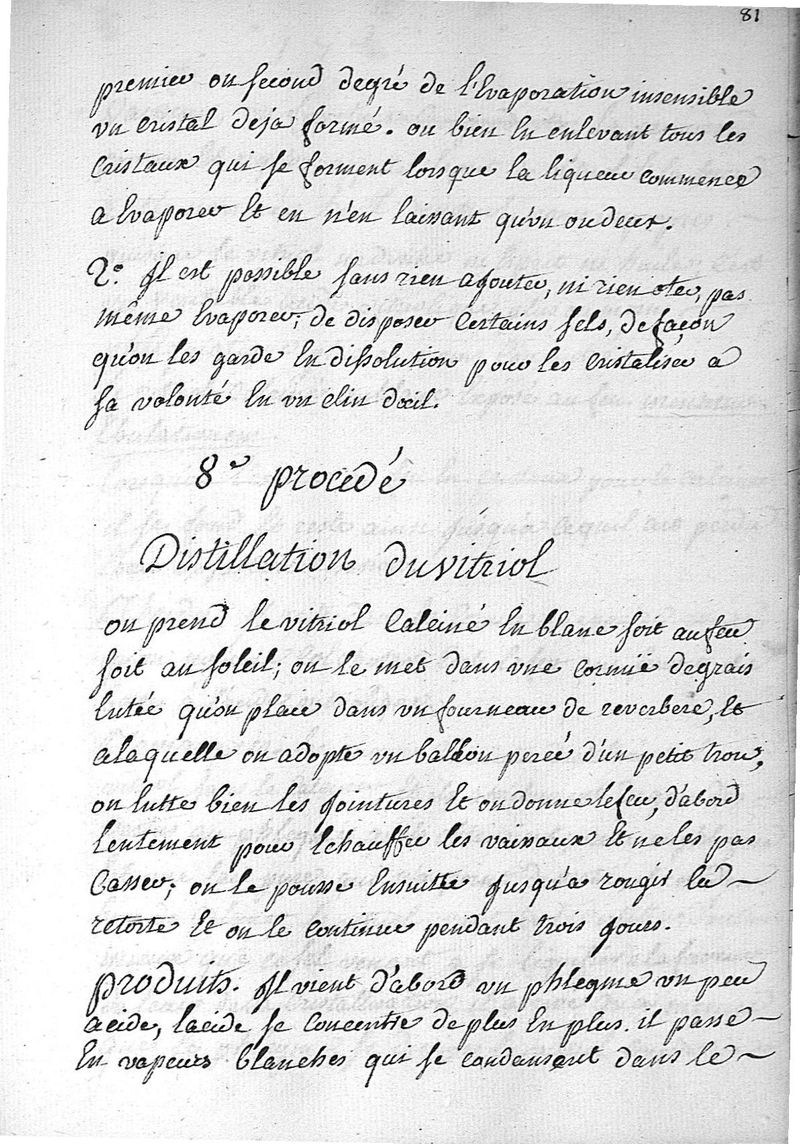 81
premier ou second degré de l'Evaporation insensible
vn cristal deja formé. ou bien En enlevant tous les
Cristaux qui se forment lorsque la liqueur commence
a Evaporer Et en n'en laissant qu'vn ou deux.
2.° Il est possible sans rien ajouter, ni rien oter, pas
même Evaporer, de disposer Certains sels, de façon
qu'on les garde En dissolution pour les Cristaliser a
sa volonté En vn clin d'œil.
8e procedé
Distillation du vitriol
on prend le vitriol Calciné En blanc soit au feu
soit au soleil; on le met dans vne cornüe de grais
lutée qu'on place dans vn fourneau de reverbere, Et
a laquelle on adopte vn ballon percé d'un petit trou,
on lutte bien les Jointures Et on donne le feu, d'abord
lentement pour Echauffer les vaissaux Et ne les pas
Casser; on le pousse Ensuitte Jusqu'a rougir la
retorte Et on le continue pendant trois Jours.
produits. Il vient d'abord vn phlegme vn peu
acide, l'acide se Concentre de plus En plus. il passe
En vapeurs blanches qui se condansent dans le